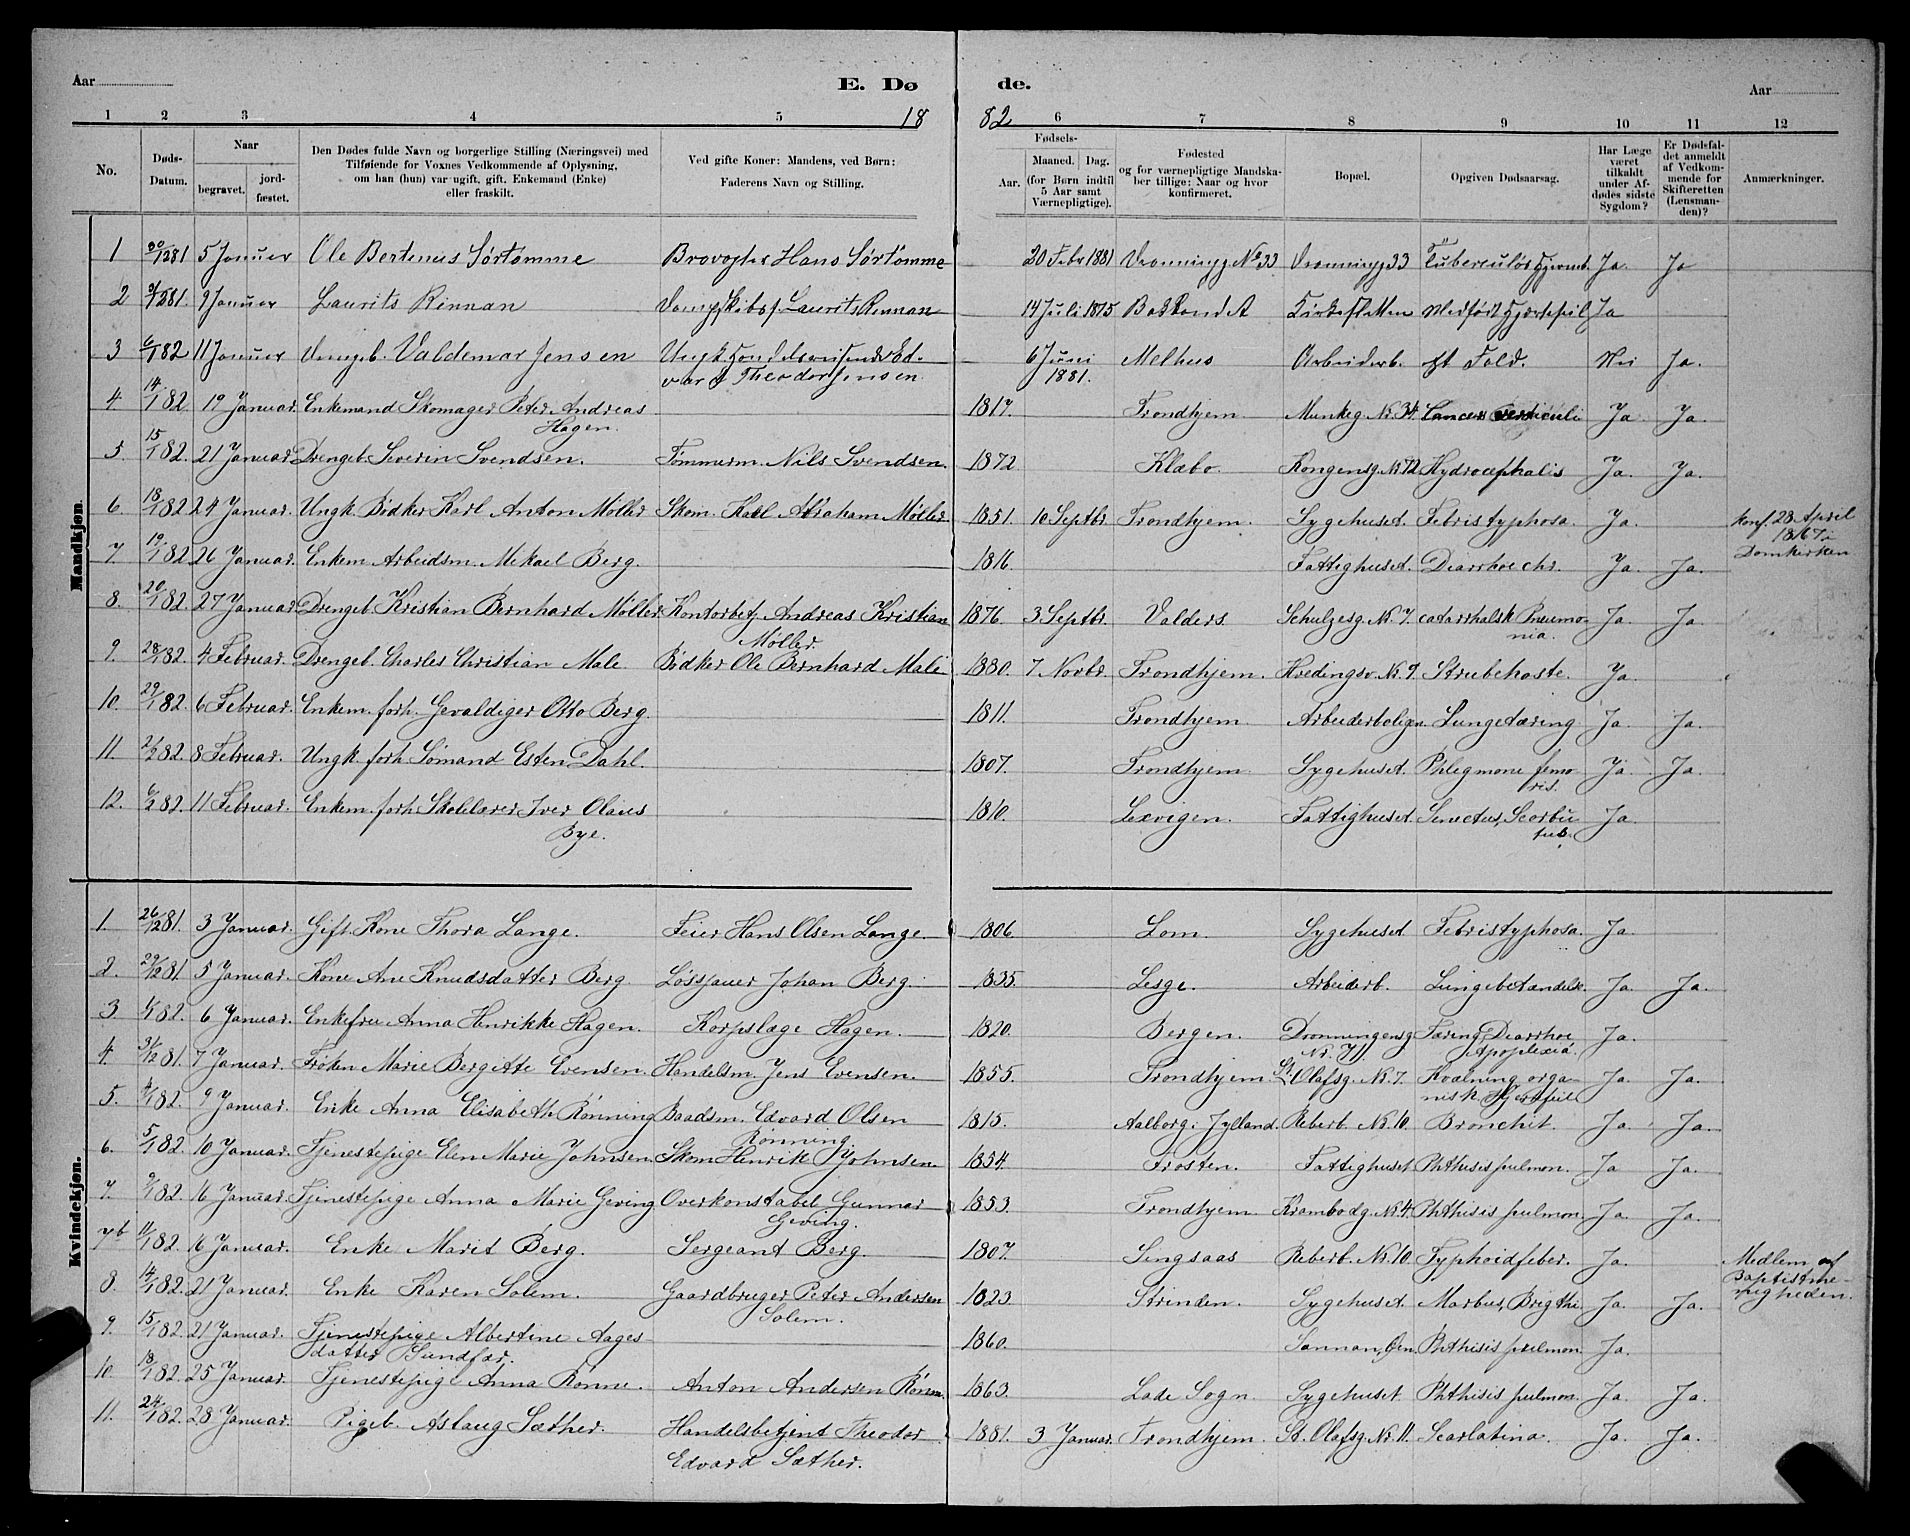 Aar
E. Dø
de.
Aar
18
82
1 2 3 4 5 6 7 8 9 10 11 12
No.
Døds-
Datum.
Naar
begravet.
jord-
fæstet.
Den Dødes fulde Navn og borgerlige Stilling (Næringsvei) med
Tilføiende for Voxnes Vedkommende af Oplysning,
om han (hun) var ugift, gift, Enkemand (Enke)
eller fraskilt.
Ved gifte Koner: Mandens, ved Børn:
Faderens Navn og Stilling.
Fødsels-
Aar.
Maaned.
Dag.
(for Børn indtil
5 Aar samt
Værnepligtige).
Fødested
og for værnepligtige Mandska-
ber tillige: Naar og hvor
konfirmeret.
Bopæl.
Opgiven Dødsaarsag.
Har Læge
været
tilkaldt
under Af-
dødes sidste
Sygdom?
Er Dødsfal-
det anmeldt
af Vedkom-
mende for
Skifteretten
(Lensman-
den)?
Anmærkninger.
Mandkjøn.
1 30/1281 5 Januer Ole Bertenus Sørtømme Brovogter Hans Sørtømme 20 Febr 1881 Dronningg No 33 Dronningg 33 Tuberculos Ja Ja
2 9 Januer Laurits Rinnan Laurits Rinnan 14 Juli 1875 Baklandet Medført Hjertefeil Ja
3 6/182 11 Januer Drengeb. Valdemar Jensen Ungk Handelsreisende Ed-
vard Theodor Jensen 6 Juni
1881. Melhus Arbeiderb. Nei Ja.
4. 14/182 19 Januar. Enkemand Skomager Peter Andreas
Hagen. 1817. Trondhjem Munkeg. Nr. 34. Cancer Ja Ja.
5. 15/182. 21 Januar Drengeb. Severin Svendsen. Tømmerm. Nils Svendsen. 1872 Klæbo. Kongensg. Nr 72. Hydrocephalis Ja. Ja.
6. 18/182 24 Januar. Ungk. Bødker Karl Anton Møller Skom. Karl Abraham Møller 1851. 10 Septbr. Trondhjem. Sygehuset. Febris typhosa. Ja. Konf. 28 April
1867 i
Domkirken
7. 19/182 26 Januar. Enkem Arbeidsm. Mikael Berg. 1816. Fattighuset. Diarrhoe chr. Ja. Ja.
8. 20/182. 27 Januar Drengeb. Kristian Bernhard Møller. Kontorbetj. Andreas Kristian
Møller. 1876. 3 Septbr. Valders. Schulzesg. Nr. 7. catarrhalsk Pneumo-
nia. Ja. Ja.
9. 28/182. 4 Februar. Drengeb. Charles Christian Male Bødker Ole Bernhard Male 1880. 7 Novbr. Trondhjem. Hvedingsv. Nr. 9. Strubehoste. Ja.
10. 29/182. 6 Februar. Enkem. forh. Gevaldiger Otto Berg. 1811. Trondhjem. Arbeiderboligen. Lungetæring. Ja. Ja.
11. 2/282. 8 Februar. Ungk. forh. Sømand Esten Dahl. 1807. Trondhjem. Sygehuset. Phlegmone femo
ris. Ja. Ja.
12. 6/282. 11 Februar. Enkem. forh. Skolelærer Iver Olaus
Bye. 1810. Lexvigen. Fattighuset Senectus, Scorbu
tus. Ja.
Kvindekjøn.
1. 26/1281. 3 Januar. Gift Kone Thora Lange. Feier Hans Olsen Lange. 1806. Lom. Sygehuset Febris typhosa. Ja
2. 29/1281 5 Januar. Kone Ane Knudsdatter Berg Løssjauer Johan Berg. 1835. Lesge. Arbeiderb. Lungebetændelse. Ja. Ja.
3 1/182. 6 Januar. Enkefru Anna Henrikke Hagen. Korpslæge Hagen. 1820. Bergen. Dronningensg
Nr. Tæring, Diarrhoe
Apoplexia. Ja.
4. 31/1281. 7 Januar. Frøken Marie Bergitte Evensen. Handelsm. Jens Evensen. 1855. Trondhjem. St. Olafsg. Nr. 7. Kvælning orga-
nisk Hjertefeil Ja. Ja.
5. 4/182. 9 Januar. Enke Anna Elisabeth Rønning Baadsm. Edvard Olsen
Rønning. 1815. Aalborg i Jylland. Reberb. Nr. 10. Bronchit. Ja. Ja.
6. 5/182. 10 Januar. Tjenestepige Elen Marie Johnsen. Skom Henrik Johnsen. 1854. Frosten. Fattighuset Phthisis pulmon. Ja Ja.
7. 9/182. 16 Januar. Tjenestepige Anna Marie Geving Overkonstabel Gunnar
Geving. 1853. Trondhjem Krambodg. Nr. 4. Phthisis pulmon. Ja. Ja.
7b 11/182. 16 Januar. Enke Marit Berg. Sergeant Berg. 1807. Singsaas Reberb. Nr. 10. Typhoidfeber. Ja. Medlem af
Baptistme-
nigheden.
8. 14/182. 21 Januar. Enke Karen Solem. Gaardbruger Peter Andersen
Solem. 1823. Strinden. Sygehuset. Morbus Brigthi Ja. Ja.
9. 15/182. 21 Januar. Tjenestepige Albertine Aages
datter Sundfær. 1860. Sannan, Øen. Phthisis pulmon Ja.
10. 18/182. 25 Januar. Tjenestepige Anna Rønne. Anton Andersen Rønn. 1863. Lade Sogn. Sygehuset Phthisis pulmon. Ja. Ja.
11. 24/182. 28 Januar. Pigeb. Aslaug Sæther. Handelsbetjent Theodor
Edvard Sæther. 1881. 3 Januar. Trondhjem. St. Olafsg. Nr. 11. Scarlatina. Ja. Ja.